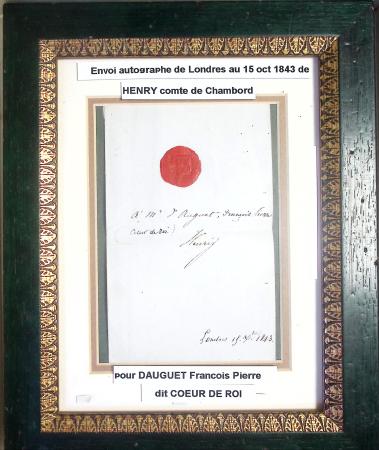 Envoi autographe de Londres au 15 oct 1843 de
HENRY comte de Chambord
A Mr D'Auguet, François Pierre
(Cœur de roi)
Henry
Londres 15 1843.
pour DAUGUET Francois Pierre
dit COEUR DE ROI